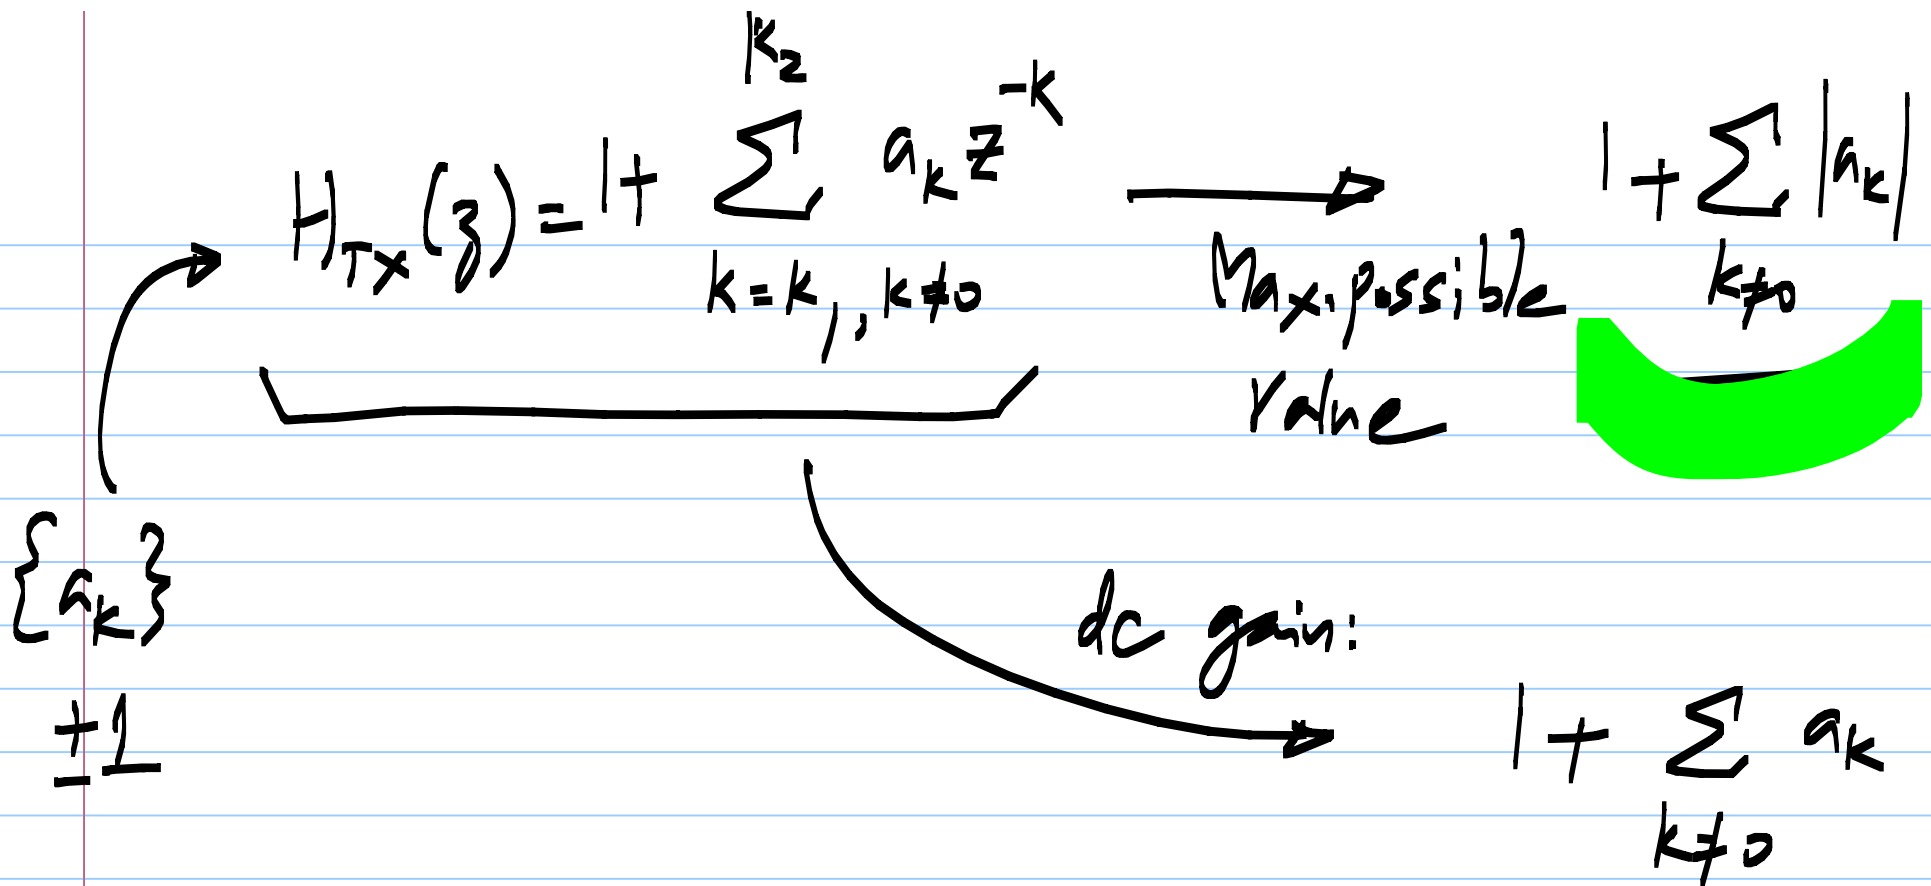 H_TX(z) = 1 + Σ_{k=k₁, k≠0}^{k₂} a_k z^{-k} → 1 + Σ_{k≠0} |a_k|
Max. possible
value
{a_k}
±1
dc gain:
1 + Σ_{k≠0} a_k